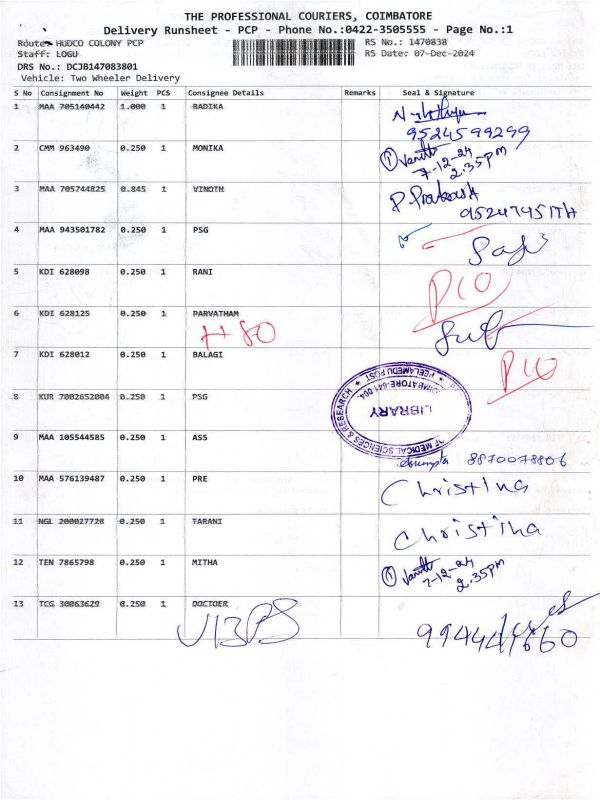 THE PROFESSIONAL COURIERS, COIMBATORE
Delivery Runsheet - PCP - Phone No.:0422-3505555 - Page No.:1
Route: HUDCO COLONY PCP RS No.: 1470838
Staff: LOGU RS Date: 07-Dec-2024
DRS No.: DCJB147083801
Vehicle: Two Wheeler Delivery
S No Consignment No Weight PCS Consignee Details Remarks Seal & Signature
1 MAA 705140442 1.000 1 RADIKA
9524599299
2 CMM 963490 0.250 1 MONIKA
7-12-24
2.35pm
3 MAA 705744825 0.845 1 VINOTH
P Prakash
4 MAA 943501782 0.250 1 PSG
5 KDI 628098 0.250 1 RANI
6 KDI 628125 0.250 1 PARVATHAM
H80
7 KDI 628012 0.250 1 BALAGI
8 KUR 7002652004 0.250 1 PSG
OF MEDICAL SCIENCES & RESEARCH
PEELAMEDU POST
COIMBATORE-641 004.
LIBRARY
9 MAA 105544585 0.250 1 ASS
8870078806
10 MAA 576139487 0.250 1 PRE Christina
11 NGL 200027728 0.250 1 TARANI Christina
12 TEN 7865798 0.250 1 MITHA
7-12-24
2.35pm
13 TCG 30063629 0.250 1 DOCTOER